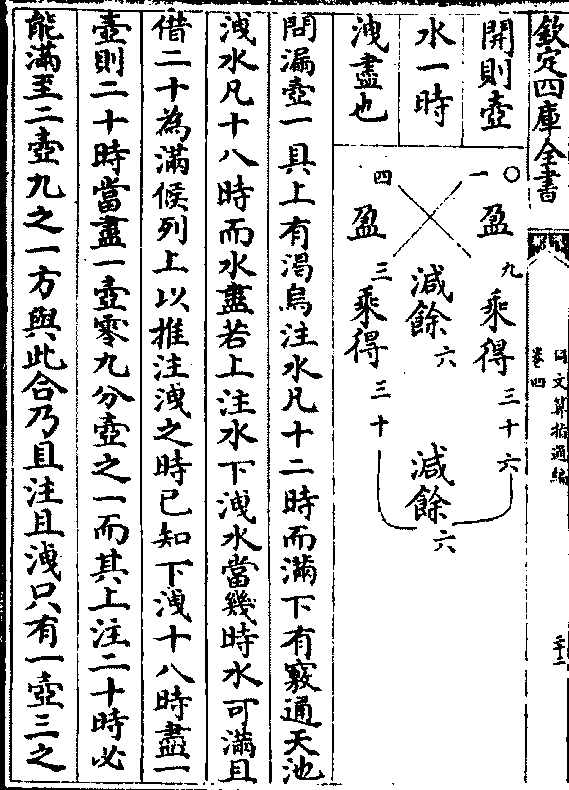 欽定四庫全書
同文算指通編
卷四
二十二
開則壺
水一時
洩盡也
○ 一盈 九乘得三十六
減餘六 減餘六
四盈 三乘得三十
問漏壺一具上有渴烏注水凡十二時而滿下有竅通天池
洩水凡十八時而水盡若上注水下洩水當幾時水可滿且
借二十為滿候列上以推注洩之時已知下洩十八時盡一
壺則二十時當盡一壺零九分壺之一而其上注二十時必
能滿至二壺九之一方與此合乃且注且洩只有一壺三之